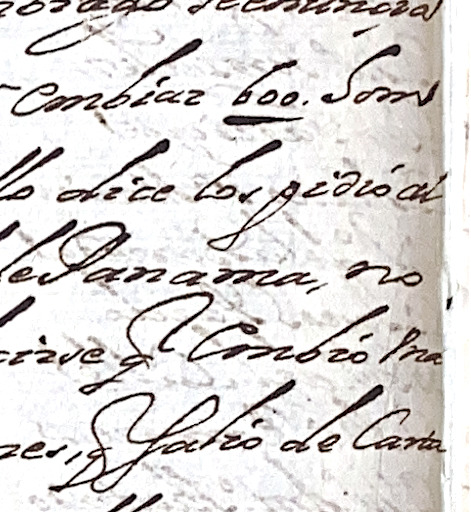 embiar 600. hom
llo dice los pidió al
de Panama, no
cirse q̃ embió Una
nes, q̃ salió de Carta